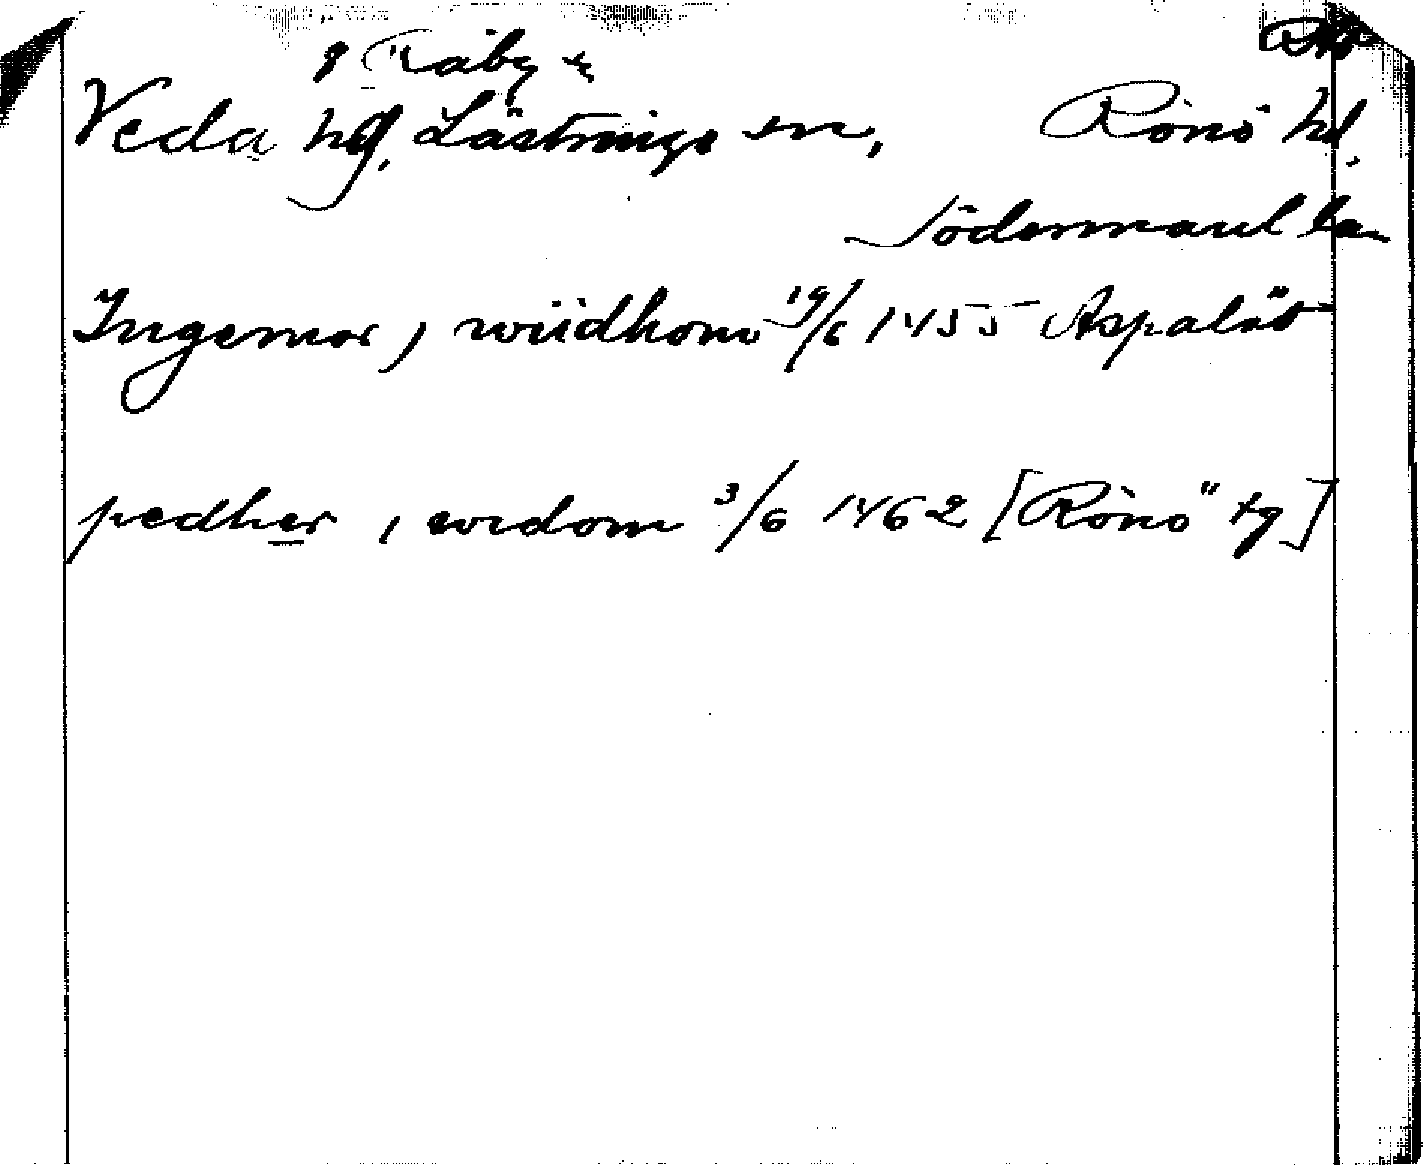 g Råby s
Veda hg. Lästringe sn, Rönö hd.
Södermanl län
Ingemar, wiidhom 19/6 1455 Aspalöt
pedher, wedom 3/6 1462 [Rönö tg]